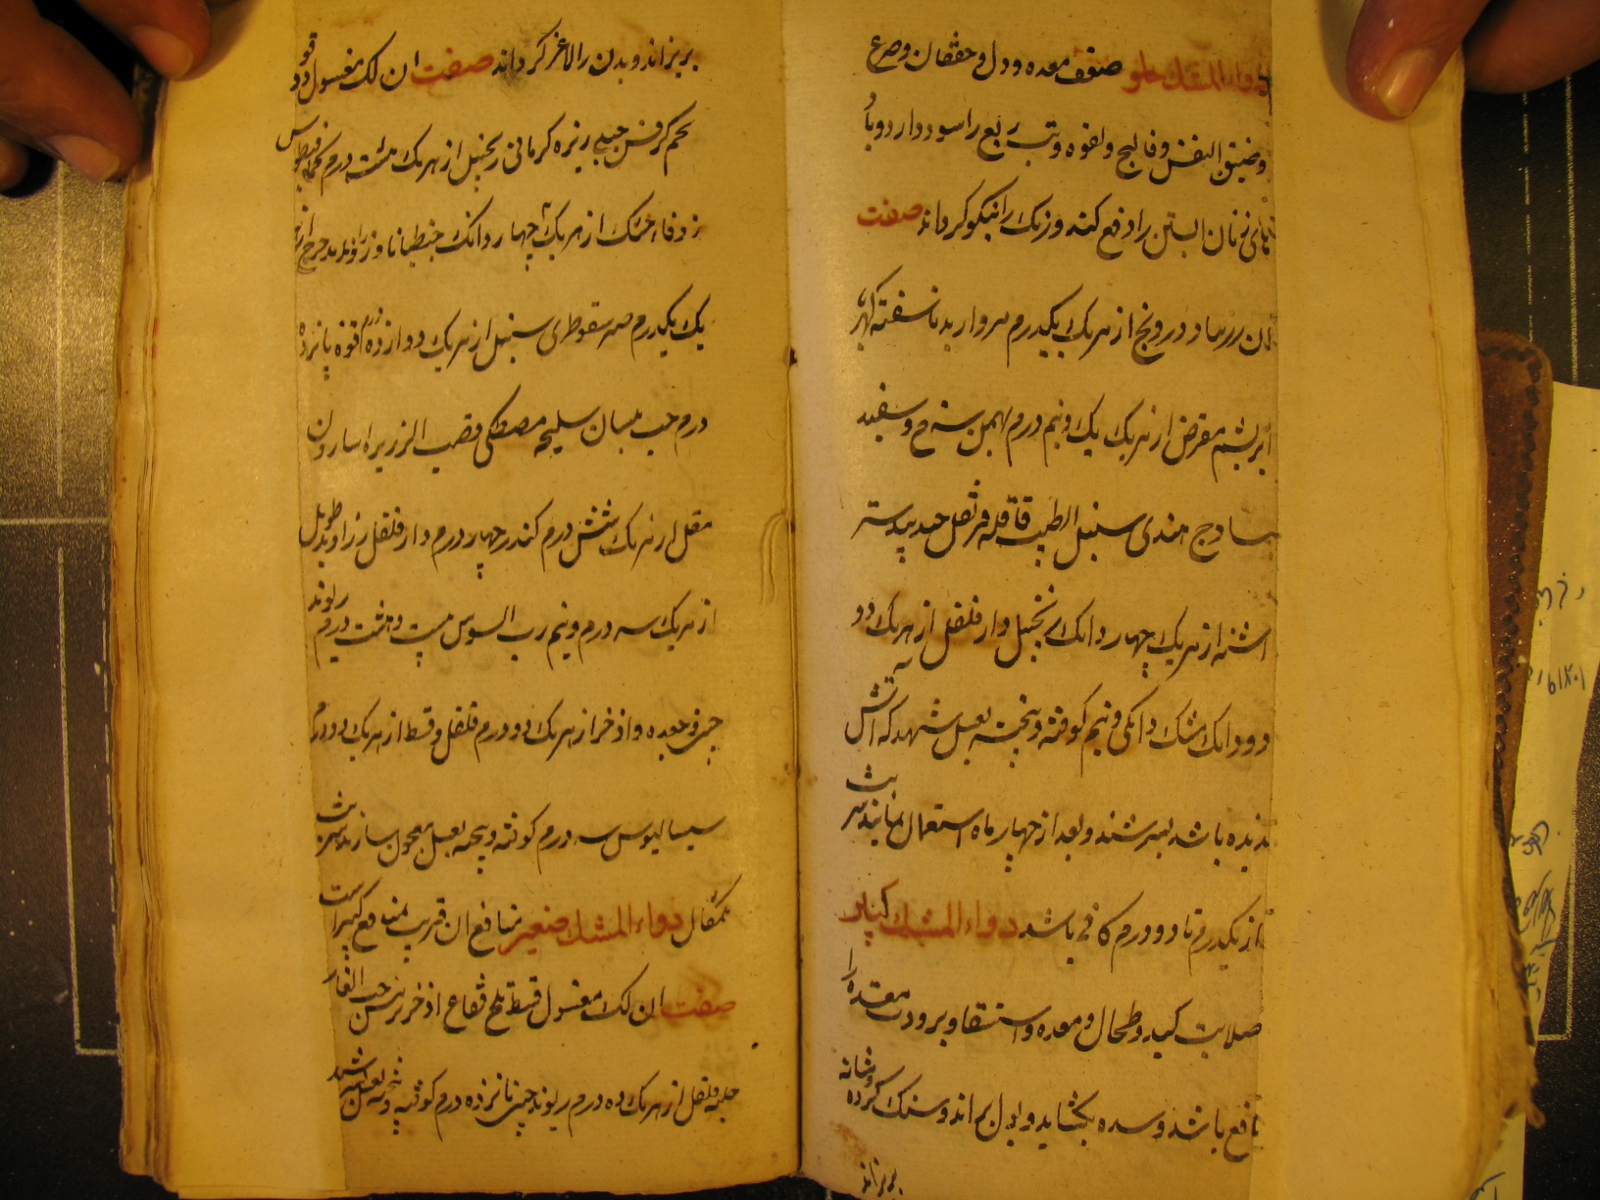 دواء المشک حلو ضعف معده و دل و خفقان و صرع
و ضیق النفس و فالج و لقوه و تب ربع را سود دارد و با
بای زنان ابستن را دفع کند و رنک را نیکو کرداند صفت
ان زرنباد و درونج از هر یک یکدرم مروارید ناسفته کهربا
ابریشم مقرض از هر یک یک و نیم درم بهمن سرخ و سفید
سادج هندی سنبل الطیب قاقله قرنفل جندبیدستر
اشنه از هر یک چهار دانک زنجبیل دار فلفل از هر یک دو
دو دانک مشک دانکی و نیم کوفته و بیخته بعسل شهد که اتش
ندیده باشد بسرشند و بعد از چهار ماه استعمال نمایند شربت
از یکدرم تا دو درم کافی باشد دواء المشک کبار
صلابت کبد و طحال و معده و استسقا و برودت معده را
نافع باشد و سده بکشاید و بول براند و سنک کرده و مثانه
بریزاند
بریزاند و بدن را لاغر کرداند صفت ان لک مغسول
تخم کرفس جبلی زیره کرمانی زنجبیل از هر یک هشت درم
زوفاء خشک از هر یک چهار دانک جنطیانا و زراوند مدحرج از هر
یک یکدرم صبر سقوطری سنبل از هر یک دوازده درم فوه پانزده
درم حب بلسان سلیخه مصطکی قصب الزریره اسارون
مقل از هر یک شش درم کندر چهار درم دار فلفل زراوند طویل
از هر یک سه درم و نیم رب السوس بیست و هشت درم ریوند
چینی و جعده و اذخر از هر یک دو درم فلفل و قسط از هر یک دو درم
سیسالیوس سه درم کوفته و بیخته بعسل معجون سازند شربت
یکمثقال دواء المشک صغیر منافع ان قریب بمنافع کبیر است
صفت ان لک مغسول قسط تلخ فقاع اذخر ترمس حب الغار
حلبه فلفل از هر یک ده درم ریوند چینی پانزده درم کوفته و بیخته بعسل